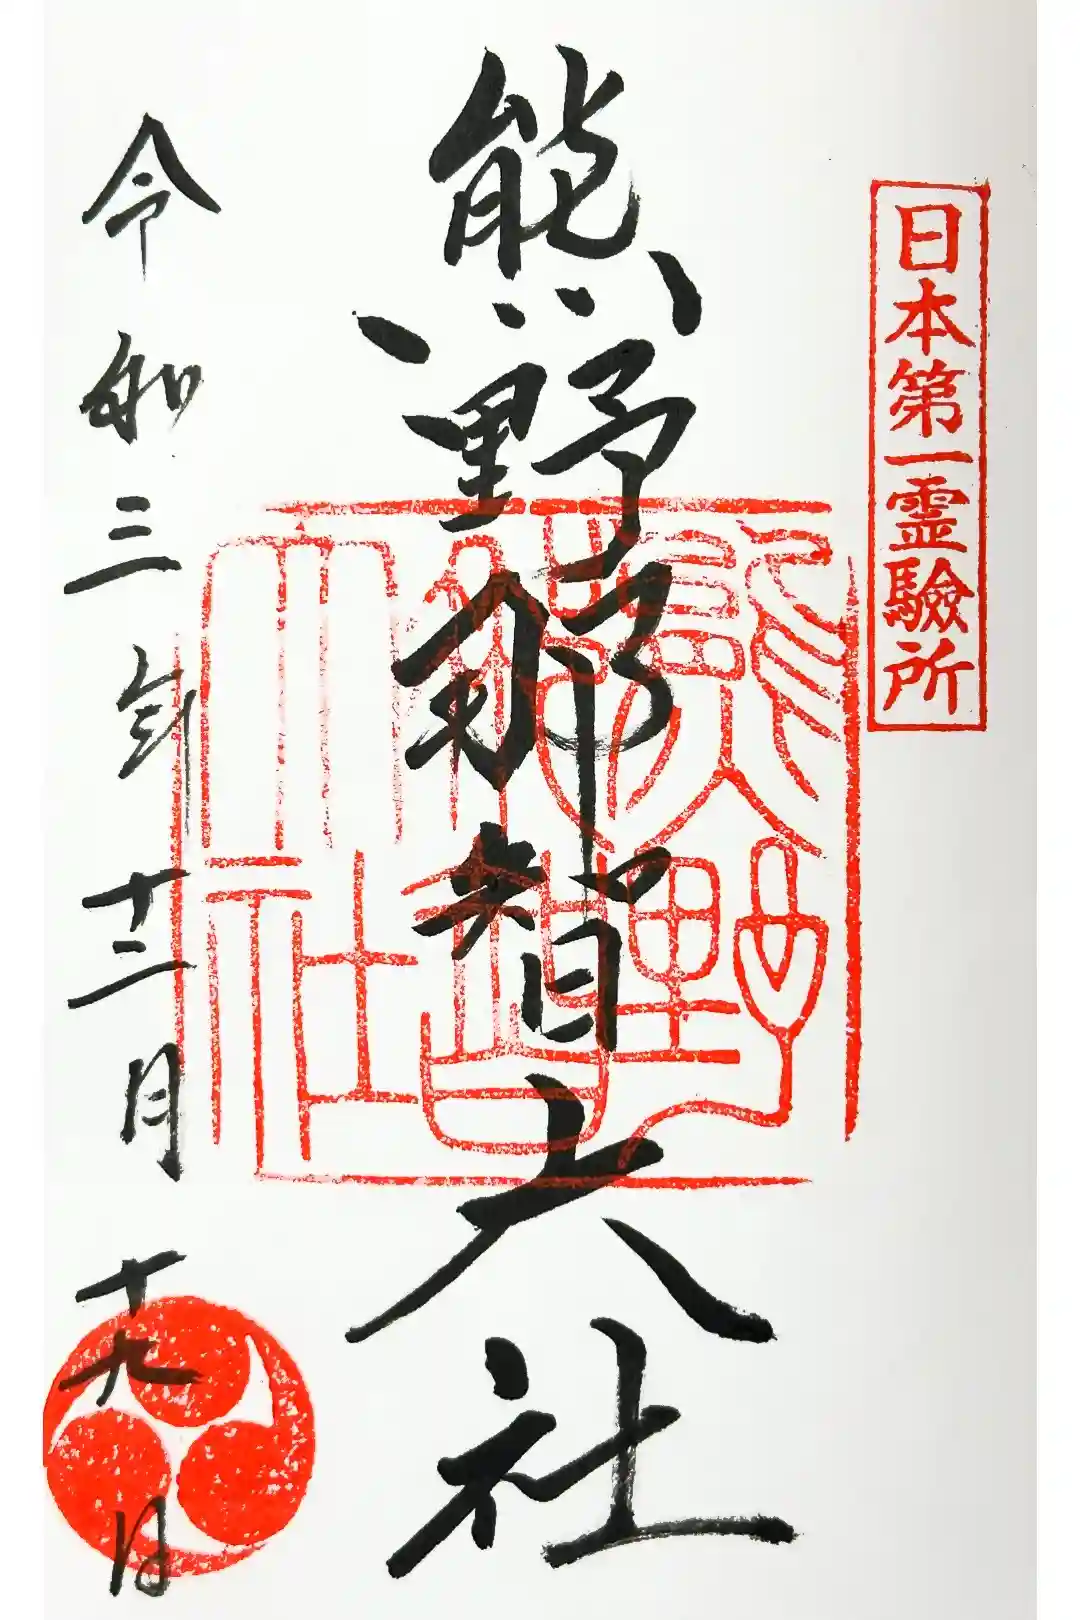 日本第一霊驗所
熊野那智大社
熊野那智大社
令和三年十二月十九日